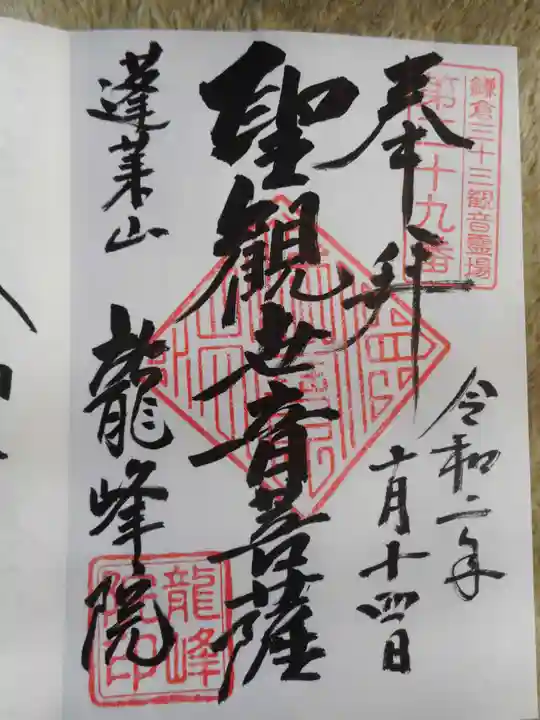 鎌倉三十三観音霊場
第二十九番
奉拝
令和二年
十月十四日
聖観世音菩薩
蓬莱山
龍峰院
龍峰
院印